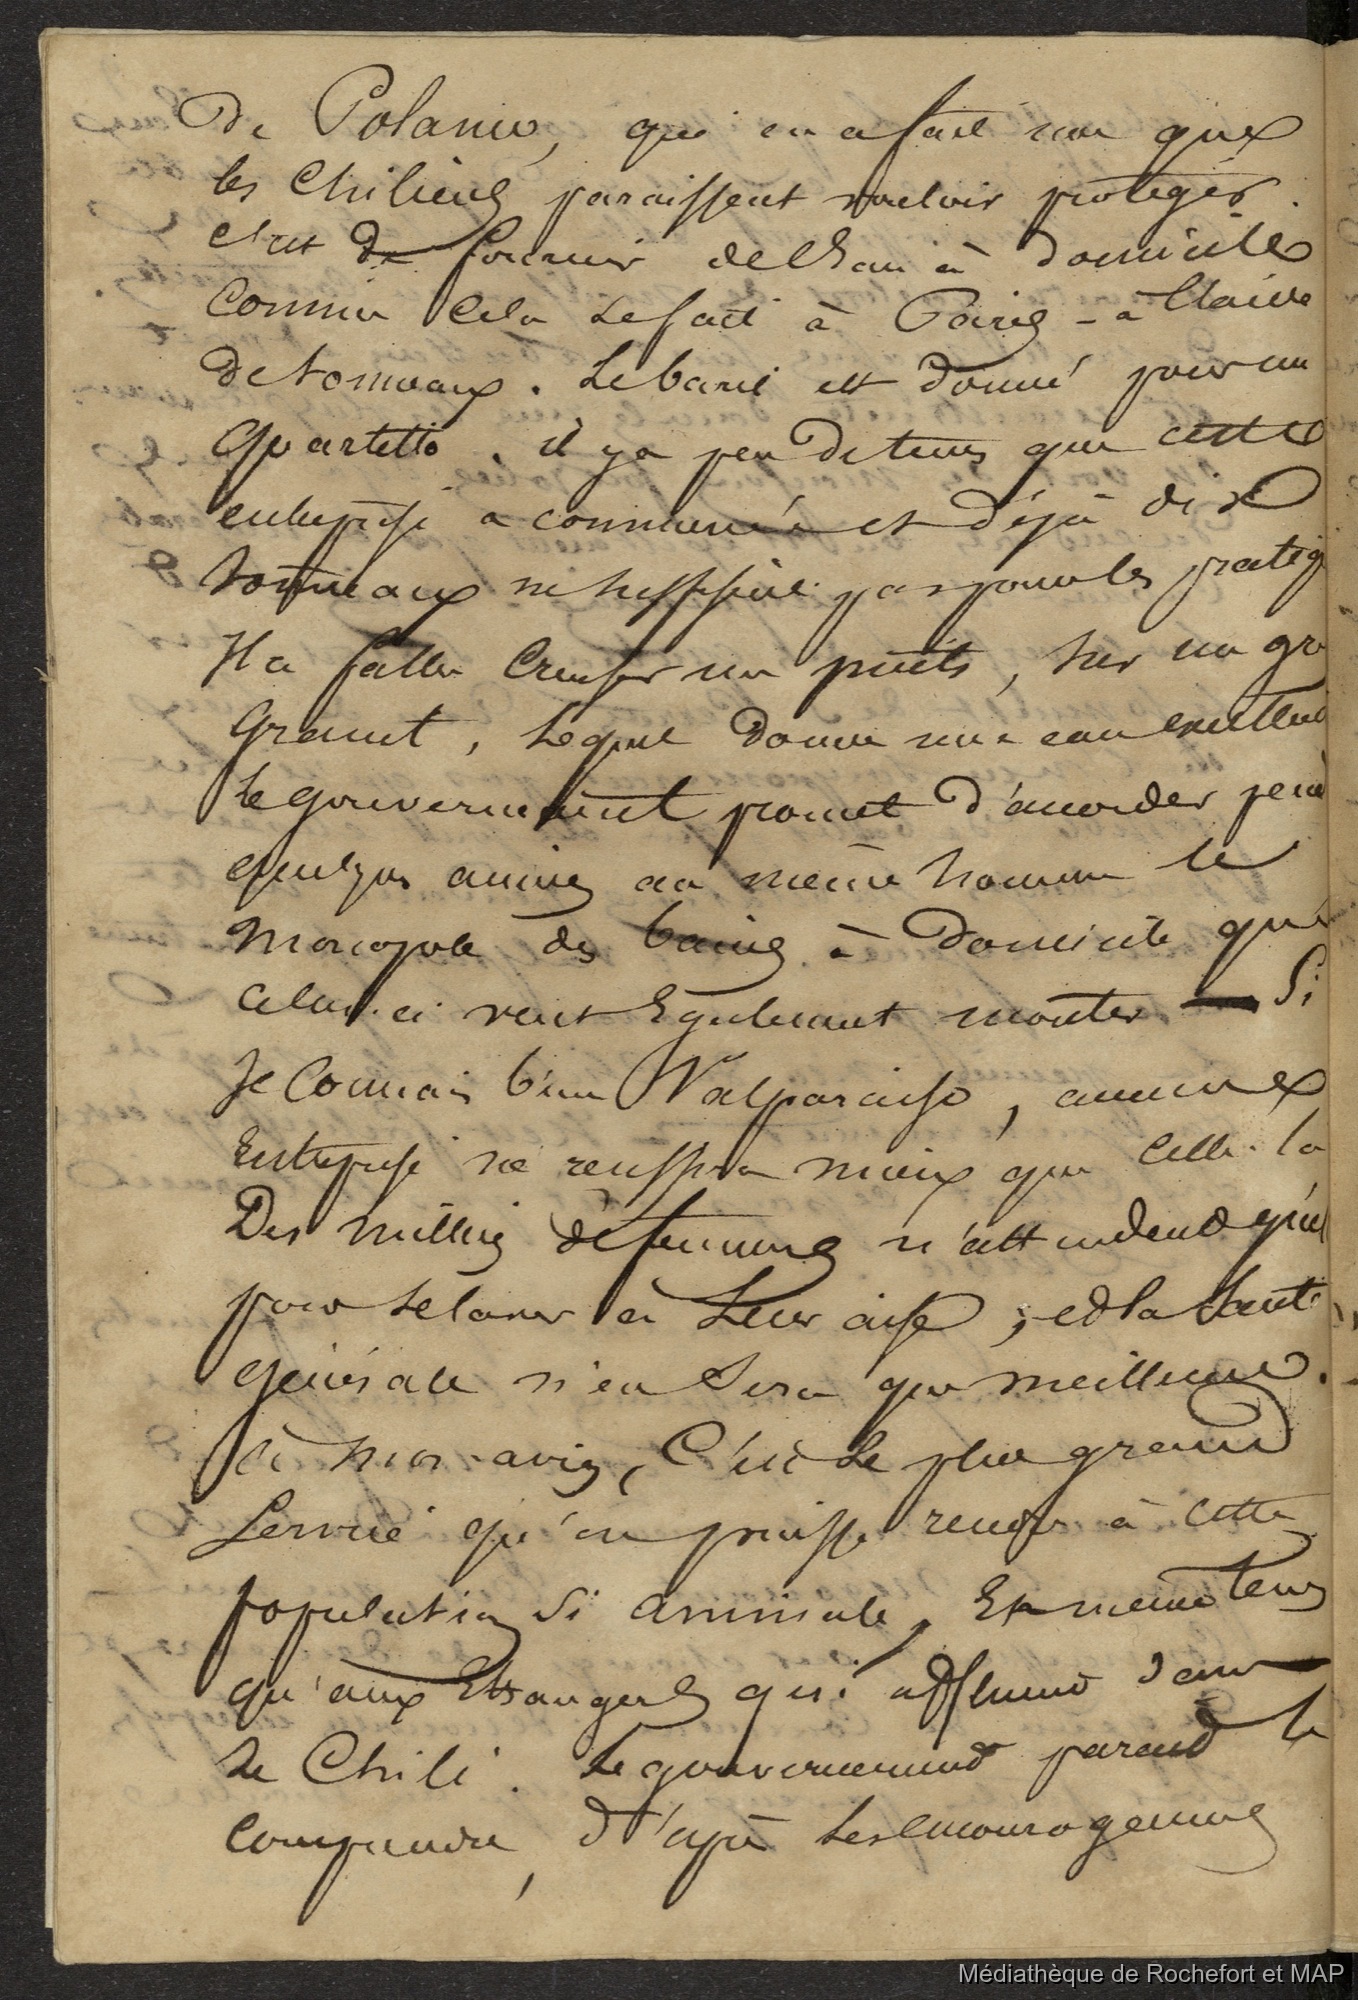 de Polanco, qui en a fait une que
les Chiliens paraissent vouloir protéger.
C'est de fournir de l'eau à domicile
comme cela se fait à Paris - à l'aide
de tonneaux. Le baril est donné pour un
quartetto. il y a peu de tems que cette
entreprise a commencée et déjà dix
tonneaux ne suffisent pas pour les pratiq
Il a fallu creuser un puits, sur un gr
granit, lequel donne une eau excellent
Le gouvernement promet d'accorder pend
quelques années au même homme le
monopole des bains à domicile que
celui-ci veut également monter — Si
je connais bien Valparaiso, aucune
entreprise ne reussira mieux que celle-la
Des milliers de femmes n'attendent que
pour se laver à leur aise ; et la santé
générale n'en sera que meilleure.
à mon avis, C'est le plus grand
service qu'on puisse rendre à cette
population si aimable, En même tems
qu'aux Etrangers qui affluent dans
le Chili. Le gouvernement parait le
comprendre, d'après les encouragemens
Médiathèque de Rochefort et MAP